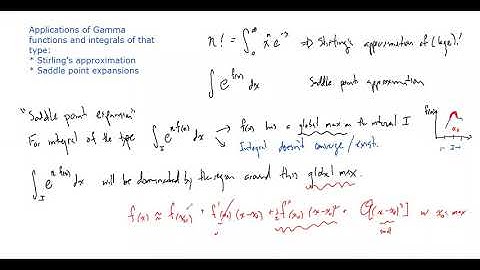 Applications of Gamma
functions and integrals of that
type:
* Stirling's approximation
* Saddle point expansions
n! = ∫₀^∞ xⁿ e^{-x} ⇒ Stirling's approximation of (large)!
∫ e^{f(x)} dx Saddle point approximation
"Saddle point expansion"
For integral of the type ∫_I e^{n f(x)} dx → f(x) has a global max on the interval I
↘ Integral doesn't converge / exist.
f(x) x₀ ⊢ I ⊣
∫_I e^{n f(x)} dx will be dominated by the region around this global max.
f(x) ≈ f(x₀) + f'(x₀) (x-x₀) + ½ f''(x₀) (x-x₀)² + O[(x-x₀)³] w x₀: max
small